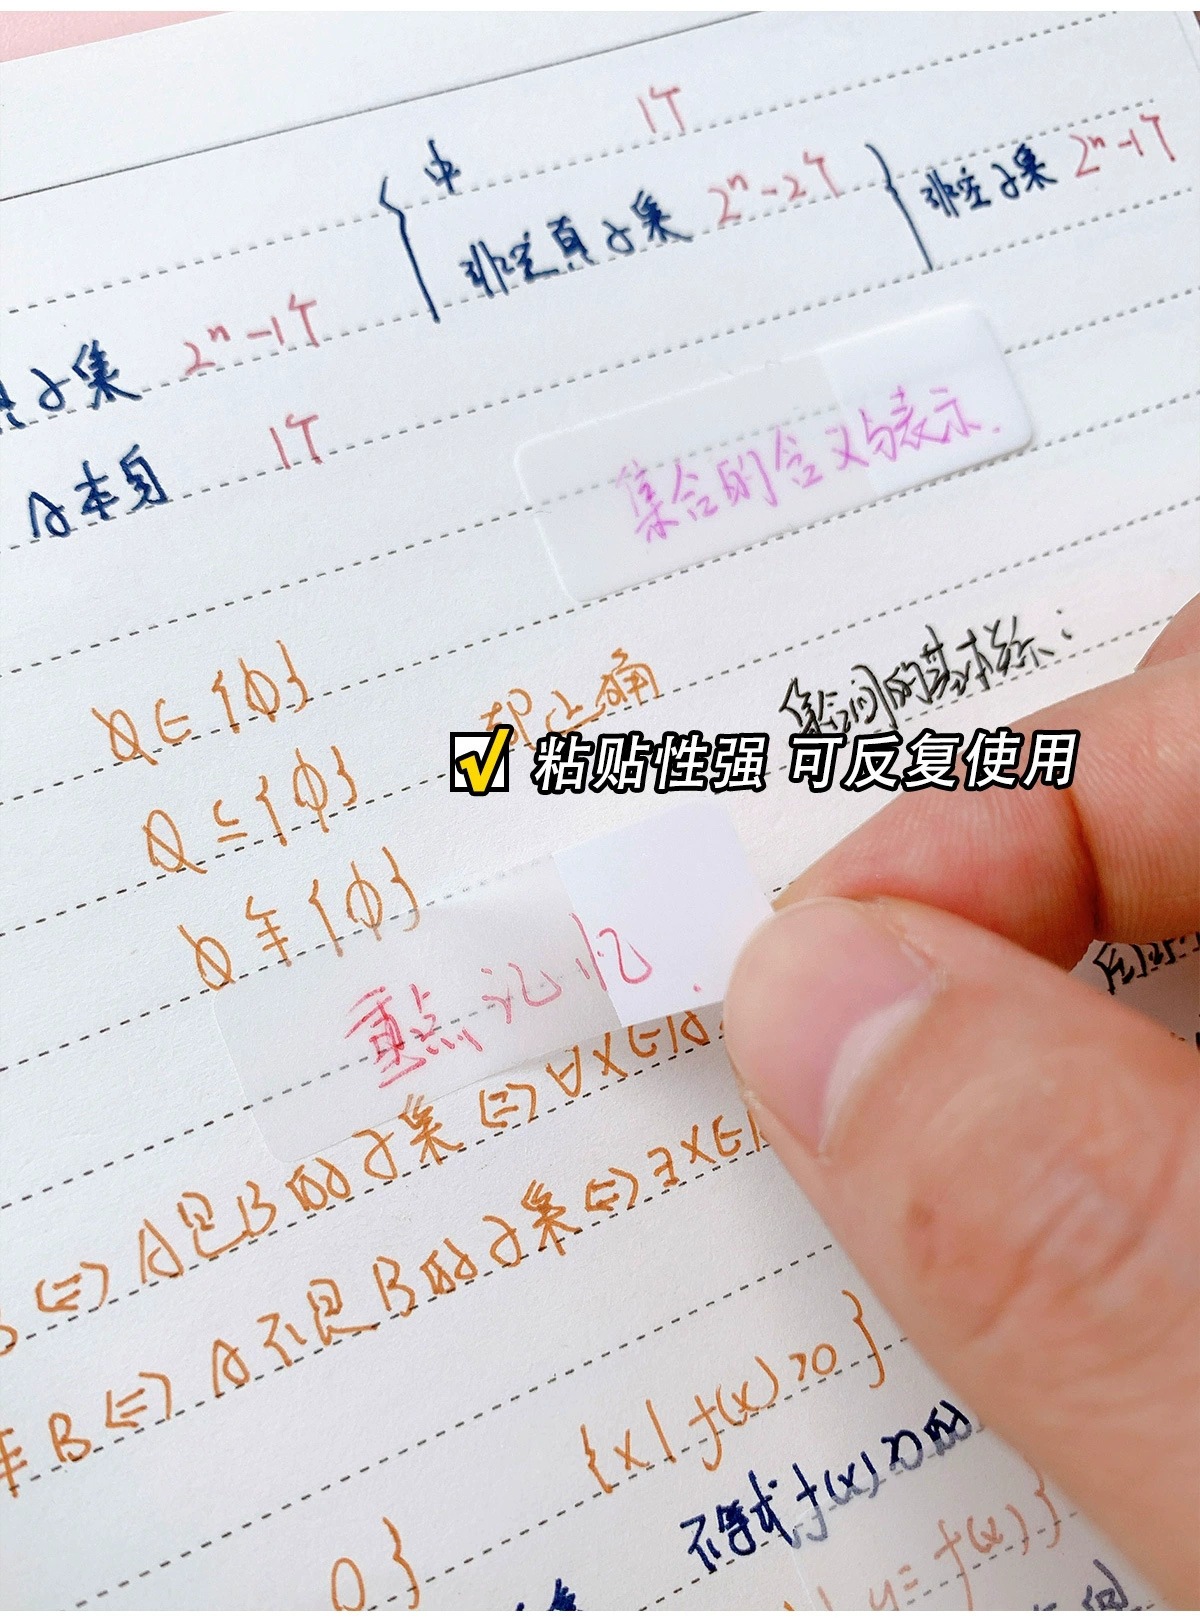 1个
非空真子集 2ⁿ-2个
非空子集 2ⁿ-1个
子集 2ⁿ-1个
A本身 1个
集合的含义与表示.
∅∈{∅}
都正确
集合间的基本关系:
粘贴性强 可反复使用
∅⊆{∅}
∅⫋{∅}
重点记忆.
⇔A是B的子集⇔∀x∈A
B⇔A不是B的子集⇔∃x∈
{x|f(x)>0}
不等式f(x)>0的
0}
y=f(x)}